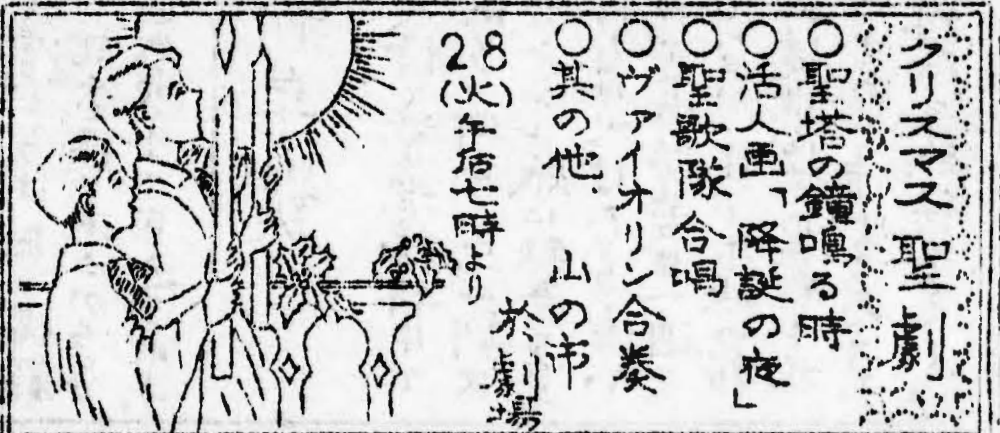 クリスマス聖劇
○聖塔の鐘鳴る時
○活人画「降誕の夜」
○聖歌隊合唱
○ヴァイオリン合奏
○其の他、山の市
28(火)午后七時より
於劇場